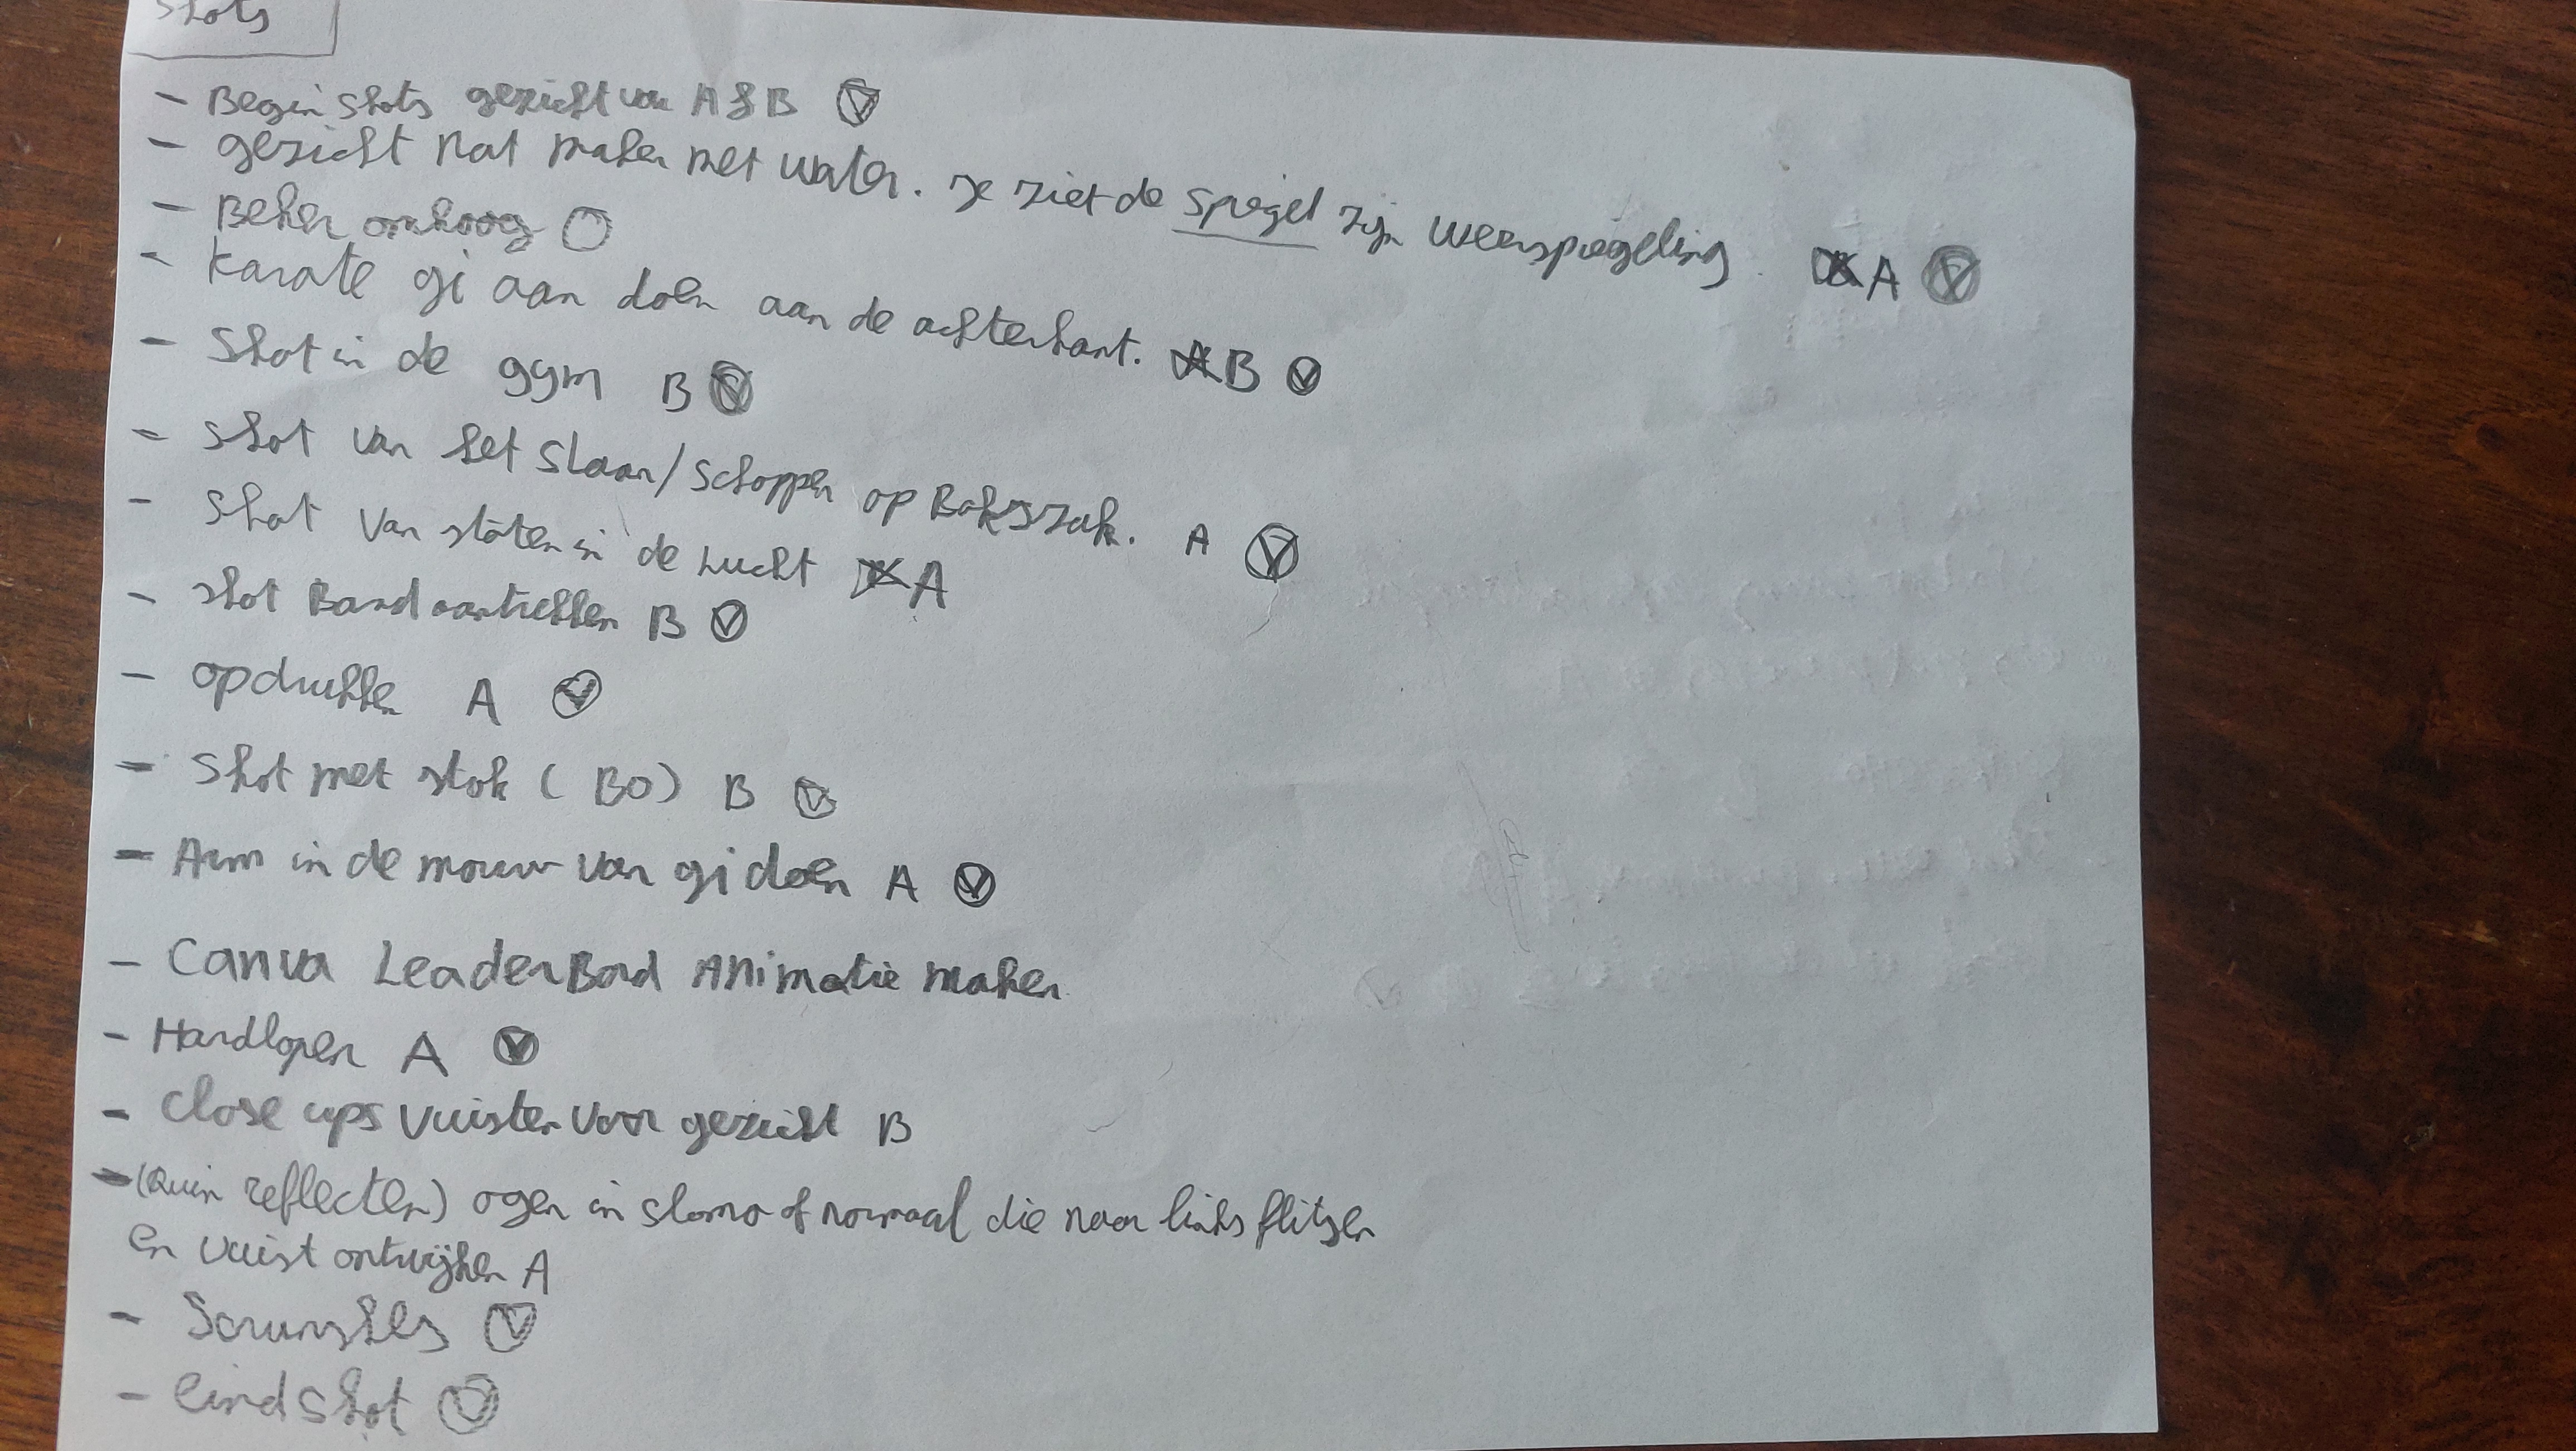 shots
- Begin shots gezicht van A & B
- gezicht nat maken met water. Je ziet de spiegel zijn weerspiegeling. A
- Beker omhoog
- karate gi aan doen aan de achterkant. B
- Shot in de gym B
- shot van het slaan/schoppen op Bokszak. A
- shot van stoten in de lucht A
- shot Band aantrekken B
- opdrukken A
- shot met stok (BO) B
- Arm in de mouw van gi doen A
- Canva Leaderbord Animatie maken
- Handlopen A
- close ups vuisten voor gezicht B
- (Ruin reflecten) ogen in slomo of normaal die naar links flitsen
en vuist ontwijken A
-
- eind shot